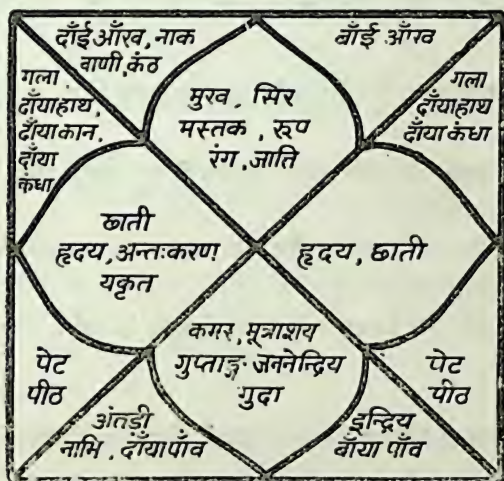 दाँई आँख, नाक
वाणी, कंठ
बाँई आँख
गला
दाँयाहाथ,
दाँयाकान,
दाँया
कंधा
मुख, सिर
मस्तक, रूप
रंग, जाति
गला
दाँयाहाथ
दाँया कंधा
छाती
हृदय, अन्तःकरण
यकृत
हृदय, छाती
कमर, मूत्राशय
गुप्ताङ्ग जननेन्द्रिय
गुदा
पेट
पीठ
पेट
पीठ
अंतडी
नाभि, दाँयापाँव
इन्द्रिय
बाँया पाँव